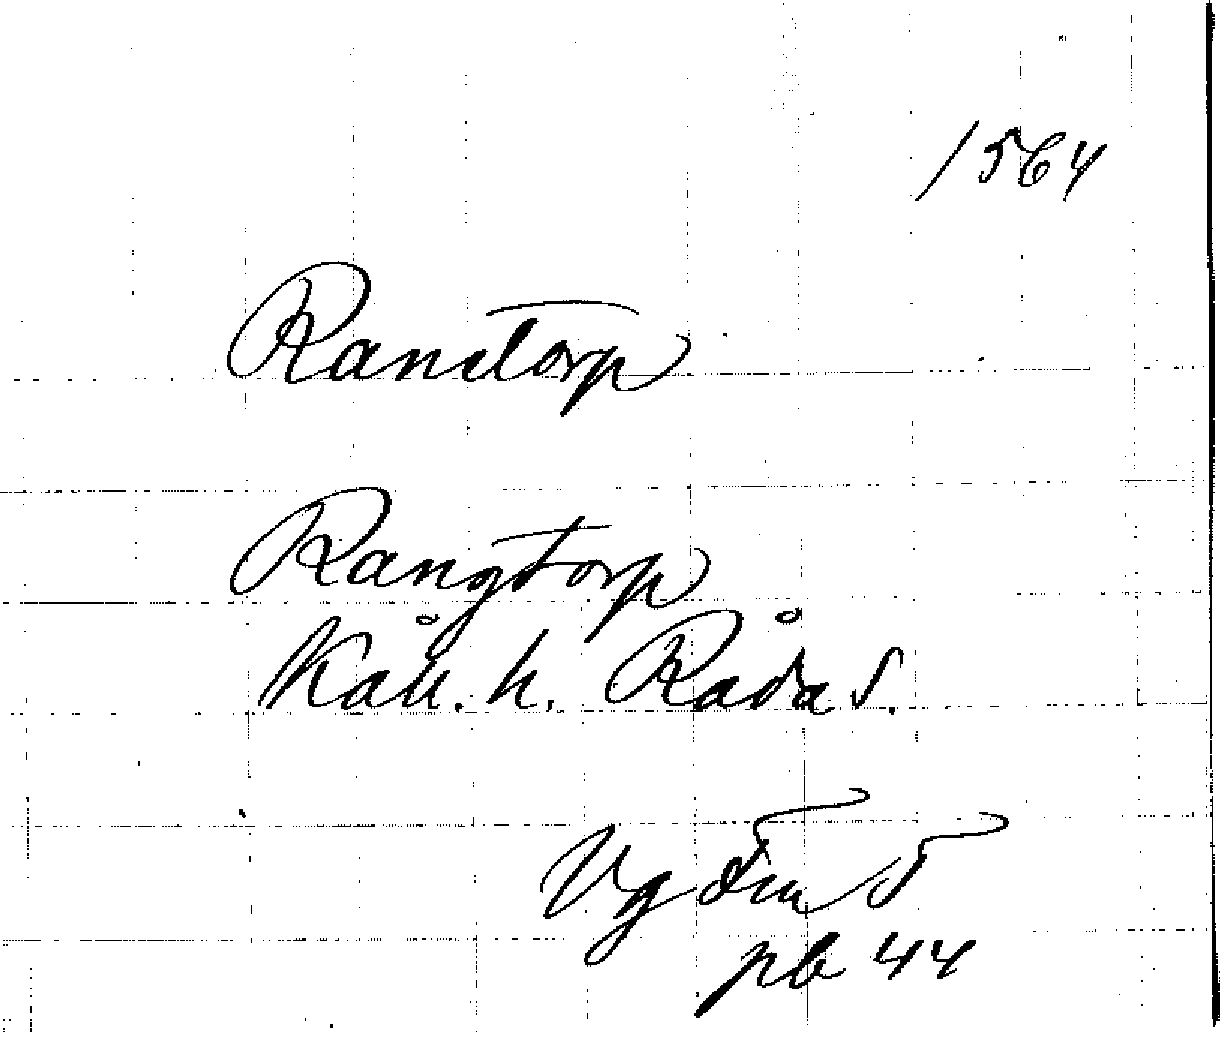 1564
Ranetorp
Rangtorp
Kåll. h. Råda s.
Vg 5
pb 44